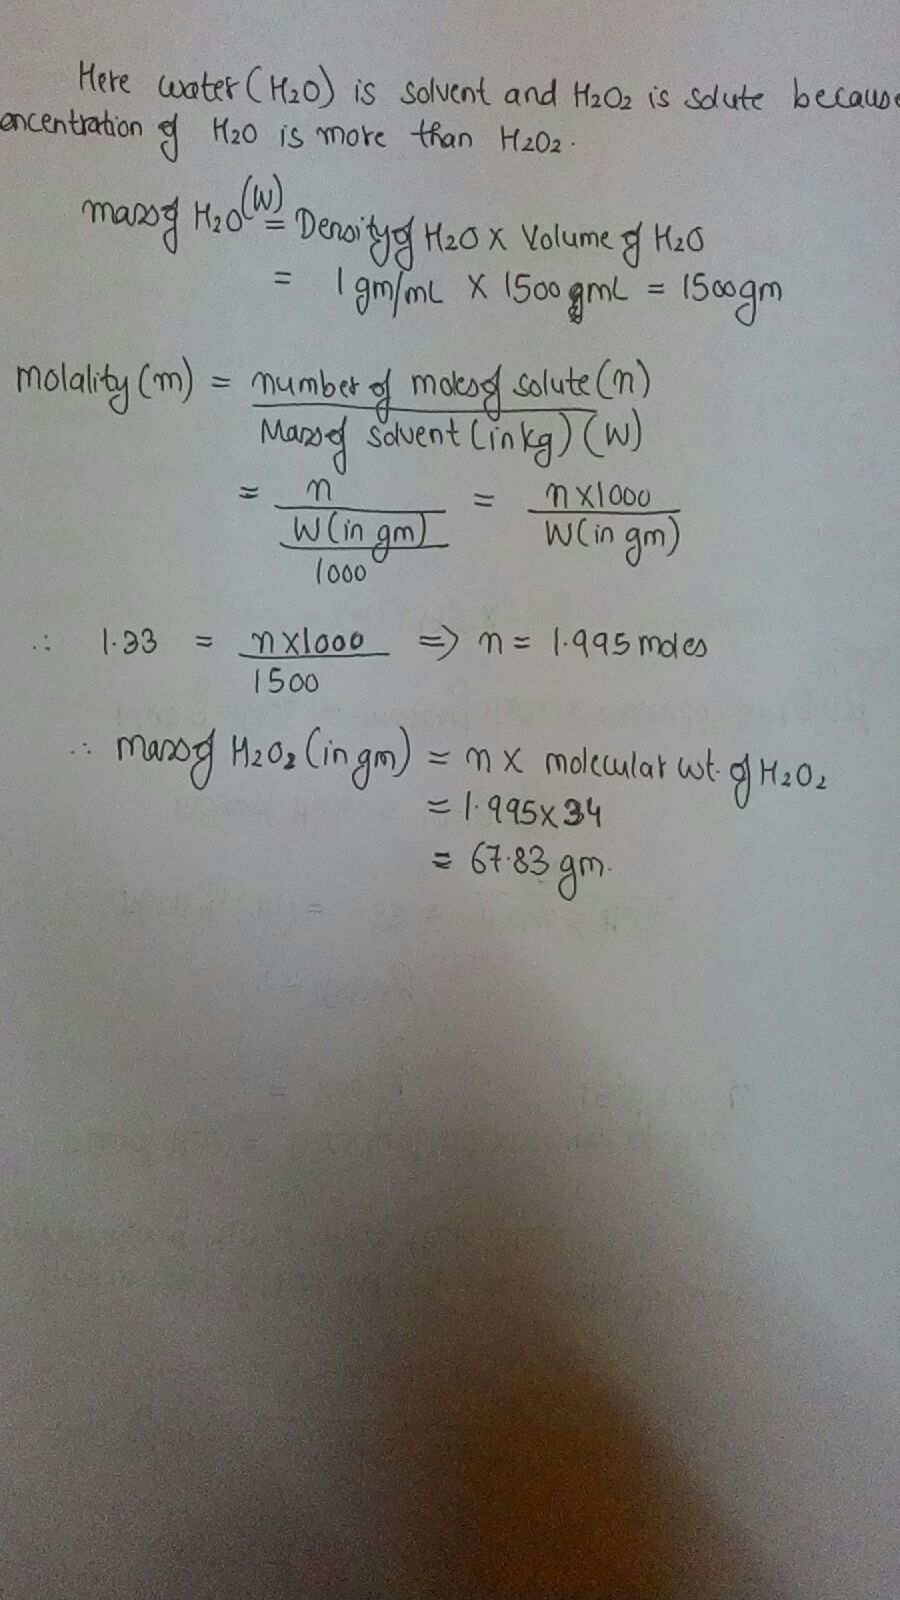 Here water (H2O) is solvent and H2O2 is solute because
oncentration of H2O is more than H2O2.
mass of H2O (W) = Density of H2O x Volume of H2O
= 1 gm/mL x 1500 mL = 1500 gm
molality (m) = number of moles of solute (n)
Mass of solvent (in kg) (W)
= n = n x 1000
W (in gm) W (in gm)
1000
∴ 1.33 = n x 1000 => n = 1.995 moles
1500
∴ mass of H2O2 (in gm) = n x molecular wt. of H2O2
= 1.995 x 34
= 67.83 gm.